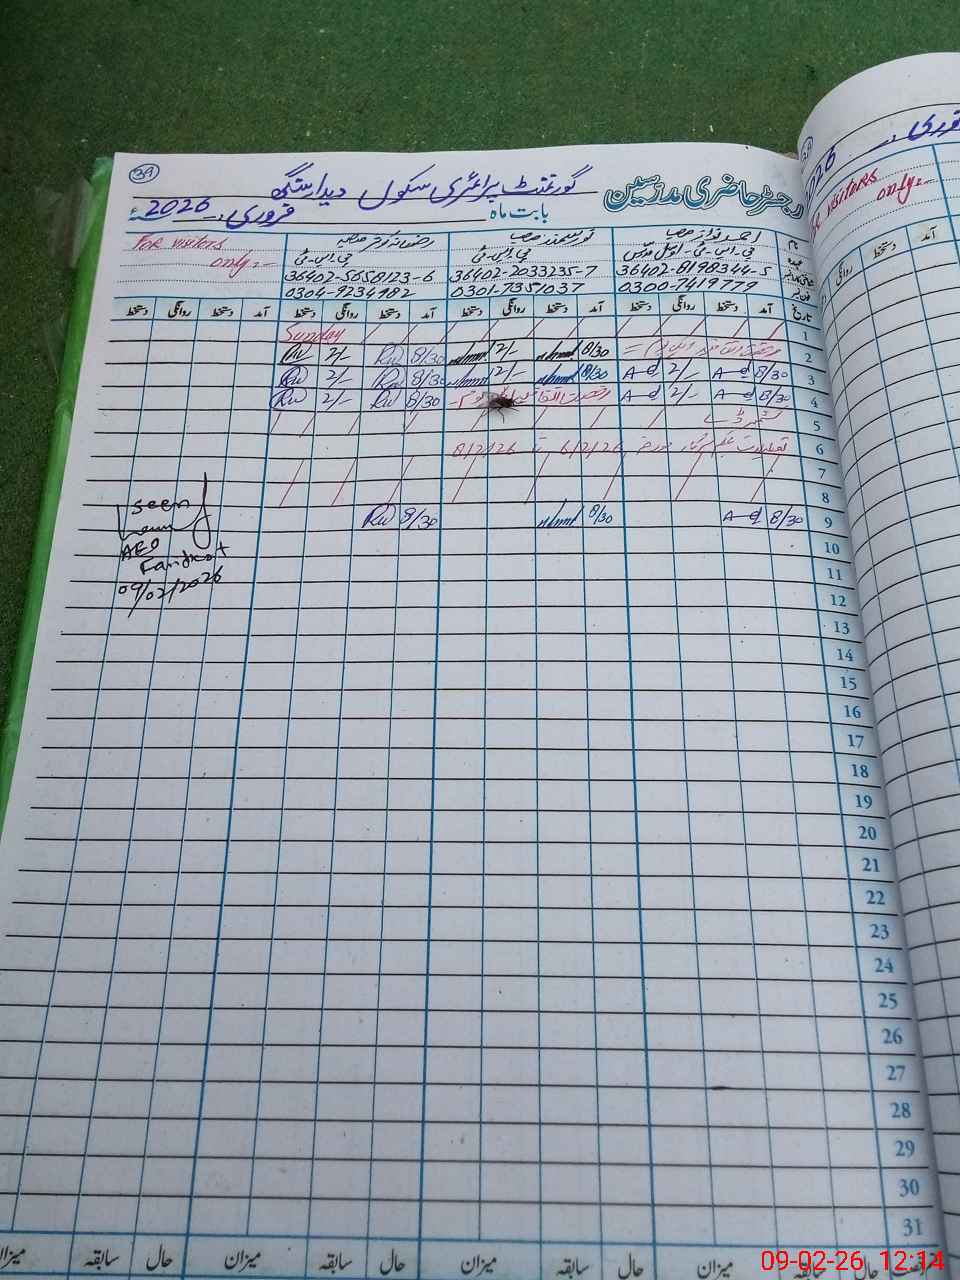 39
رجسٹر حاضری مدرسین گورنمنٹ پرائمری سکول
بابت ماہ فروری 2026ء
نام احمد نواز صاحب
رضوانہ کوثر صاحبہ
For visitors only:-
پی۔ایس۔ٹی
پی۔ایس۔ٹی
36402-8198344-5
36402-2033235-7
36402-5658123-6
0300-7419779
0301-7351037
0304-9234982
تاریخ آمد دستخط روانگی دستخط آمد دستخط روانگی دستخط آمد دستخط روانگی دستخط آمد دستخط روانگی دستخط
1 Sunday
2 8/30 2/- 8/30 2/-
3 8/30 A-d 2/- A-d 8/30 2/- 8/30 Rw 2/- Rw
4 8/30 A-d 2/- A-d 8/30 Rw 2/- Rw
5 کشمیر ڈے
6 6/2/26 تا 8/2/26
7
8
9 8/30 A-d 8/30 8/30 Rw
Seen
AEO
Faridkot
09/02/2026
10
11
12
13
14
15
16
17
18
19
20
21
22
23
24
25
26
27
28
29
30
31
حال سابقہ میزان حال سابقہ میزان حال سابقہ میزان
فروری 2026
visitors only:-
آمد دستخط روانگی
09-02-26 12:14